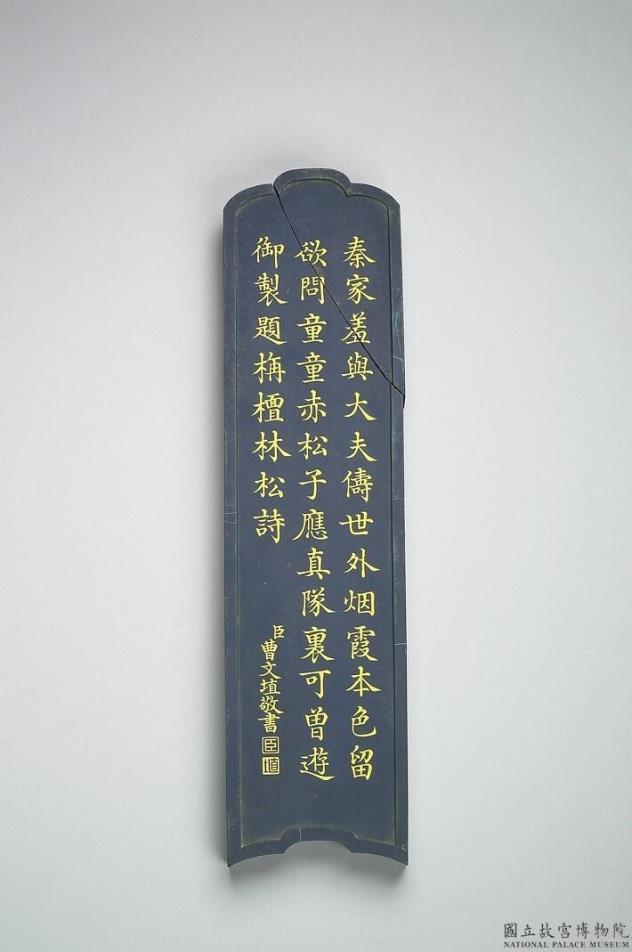 秦家羞與大夫儔世外烟霞本色留
欲問童童赤松子應真隊裏可曾遊
御製題栴檀林松詩
臣曹文埴敬書
臣
埴
國立故宮博物院
NATIONAL PALACE MUSEUM